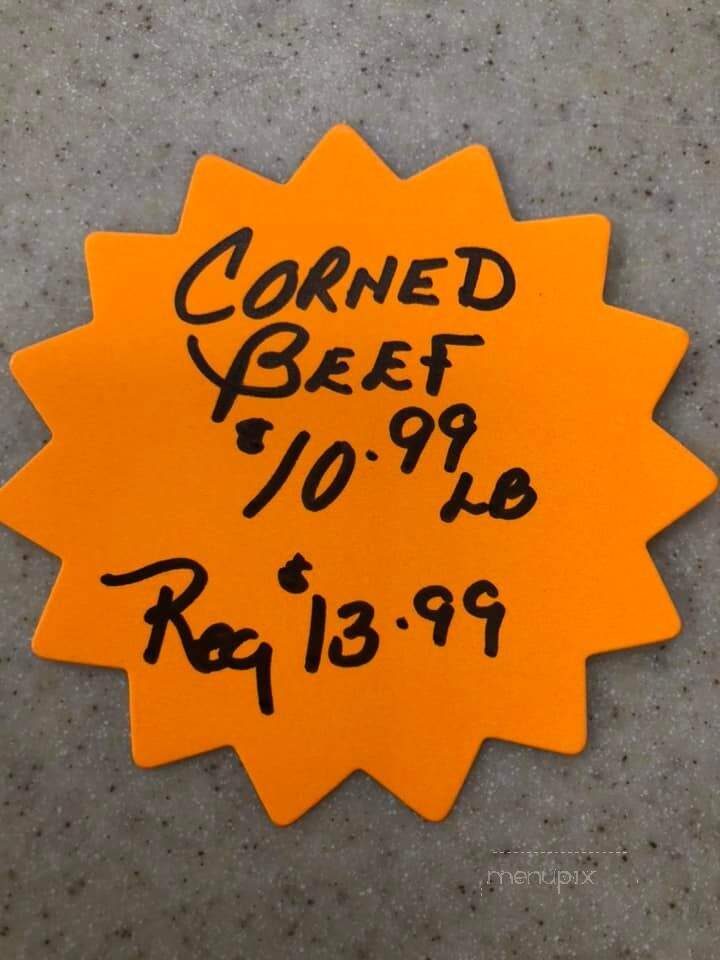 CORNED
BEEF
$10.99
LB
Reg $13.99
menupix